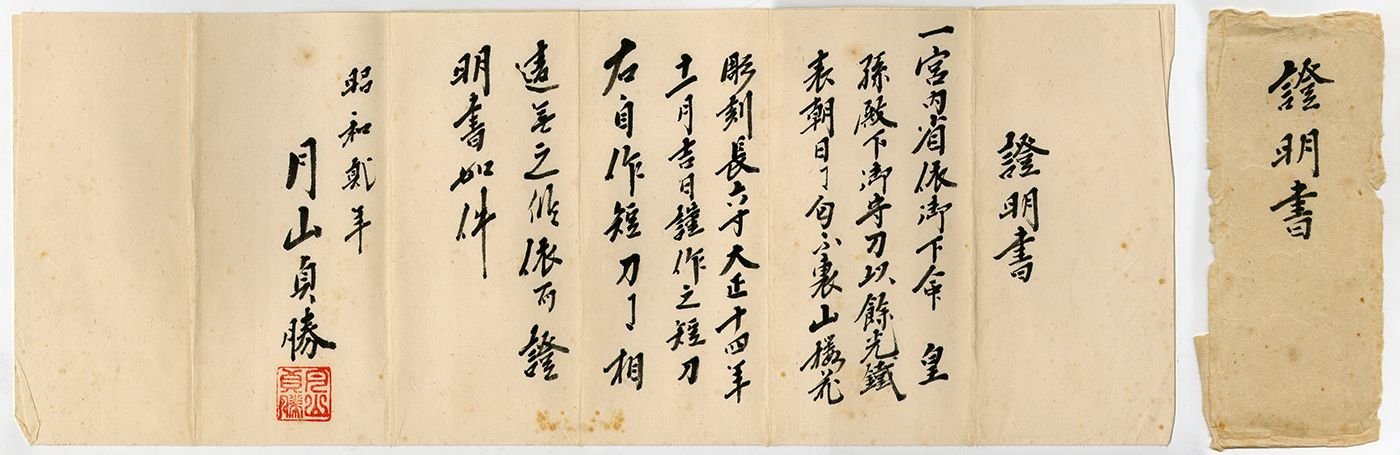 證明書
一宮内省依御下命 皇
孫殿下御守刀以餘光鐵
表朝日ニ匂ふ裏山櫻花
彫刻長六寸大正十四年
十一月吉日謹作之短刀
右自作短刀ニ相
違無之候依而證
明書如件
昭和貳年
月山貞勝
月山貞勝
證明書